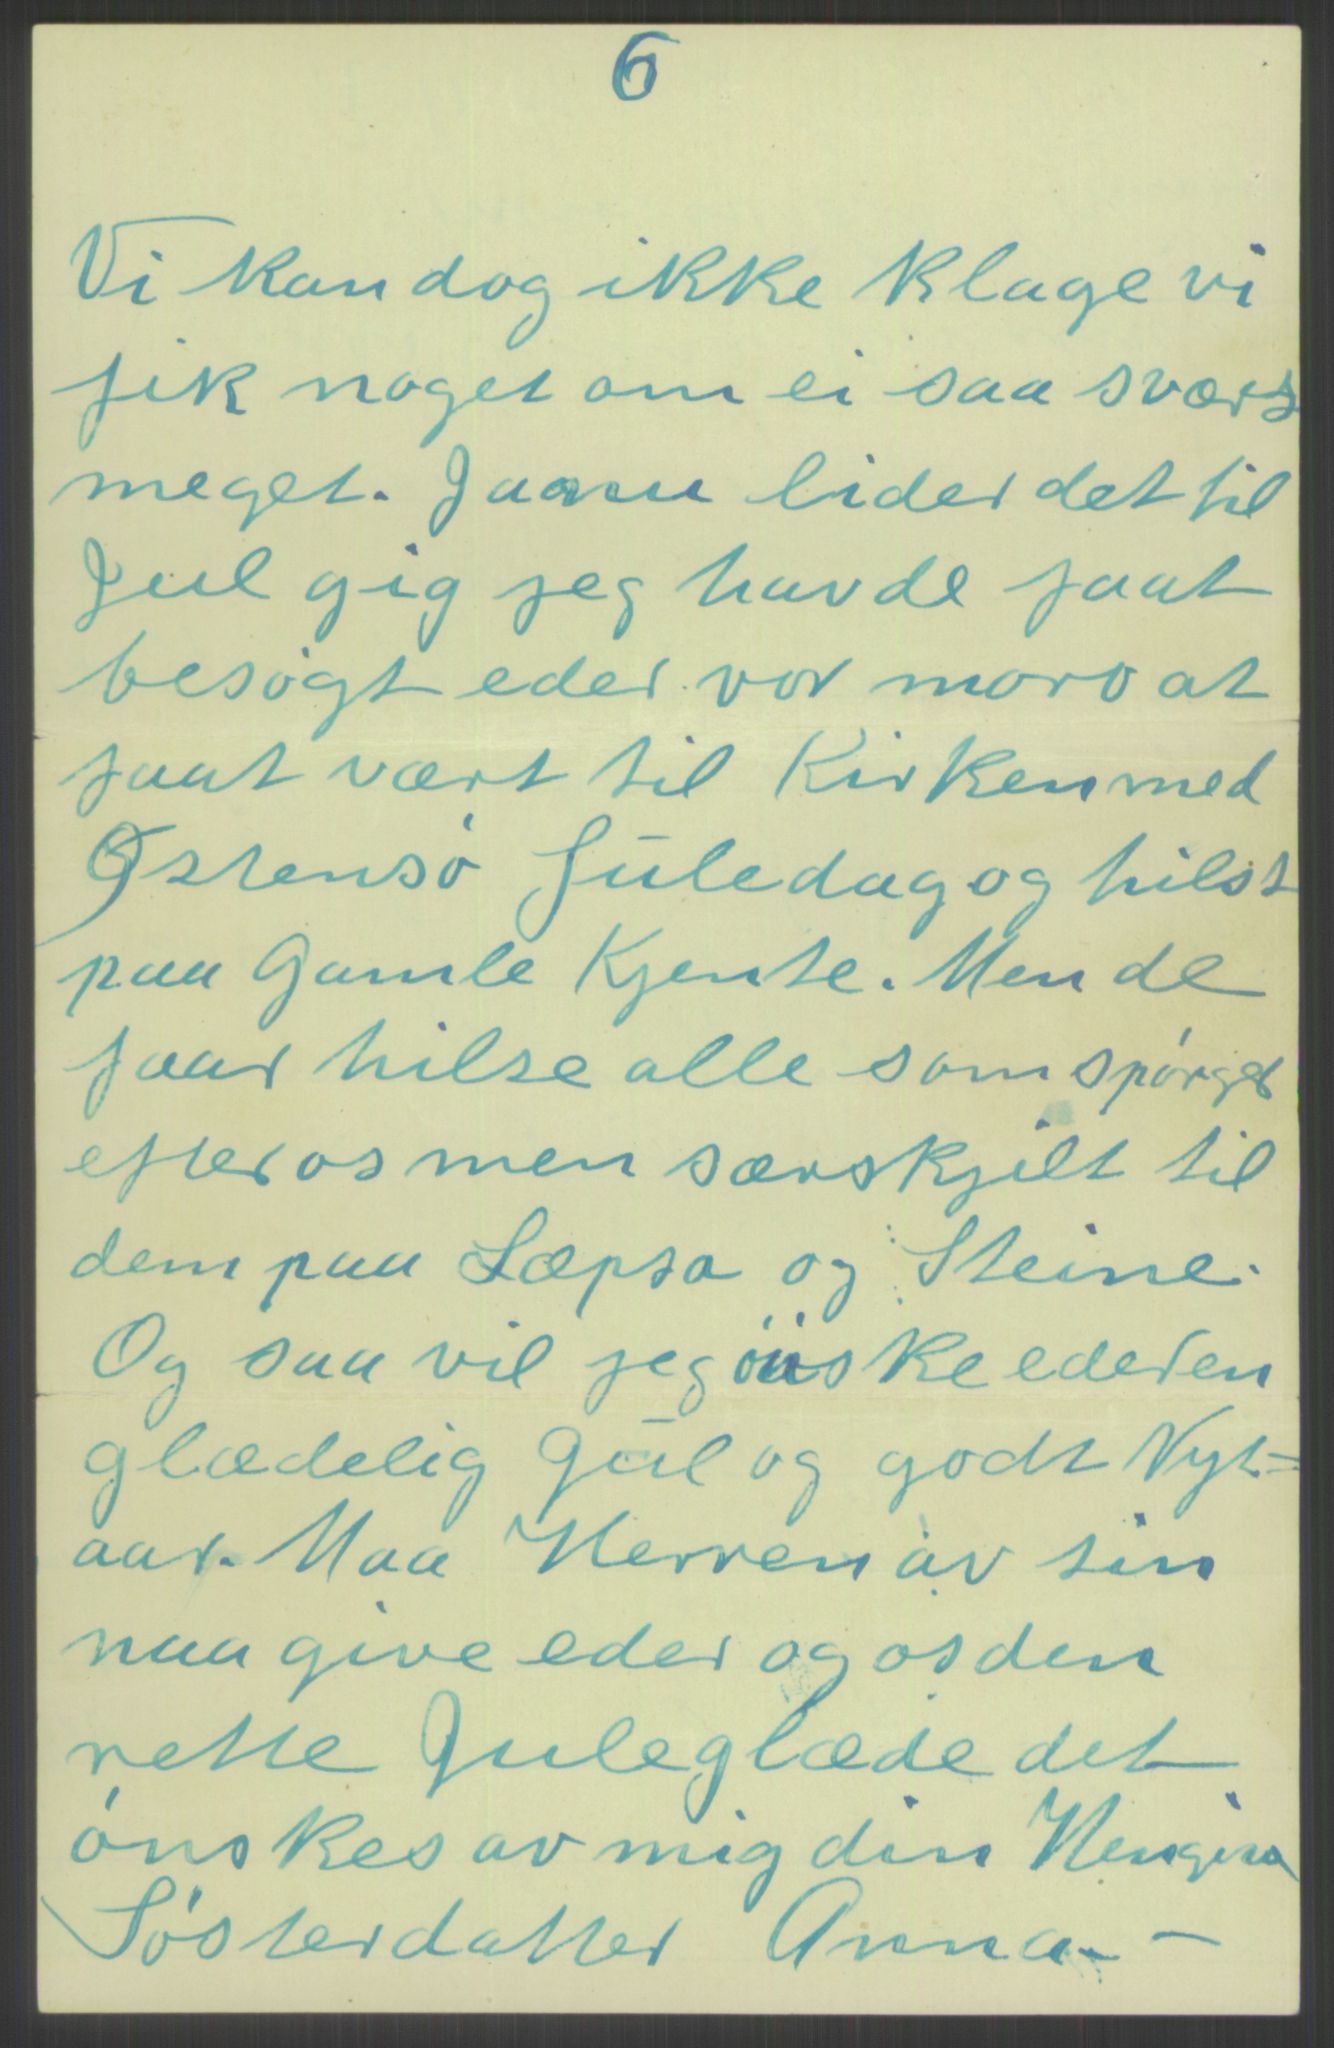 6
Vi kan dog ikke klage vi
fik noget om ei saa svært
meget. Jaa nu lider det til
Jul gig jeg havde faat
besøgt eder vor moro at
faat vært til Kirken med
Østensø Juledag og hilst
paa Gamle Kjente. Men de
faar hilse alle som spørger
efter os men særskjilt til
dem paa Læpsa og Steine.
Og saa vil jeg önske eder en
glædelig Jul og godt Nyt=
aar. Maa Herren av sin
naa give eder og os den
rette Juleglæde det
ønskes av mig din
Søsterdatter Anna. -